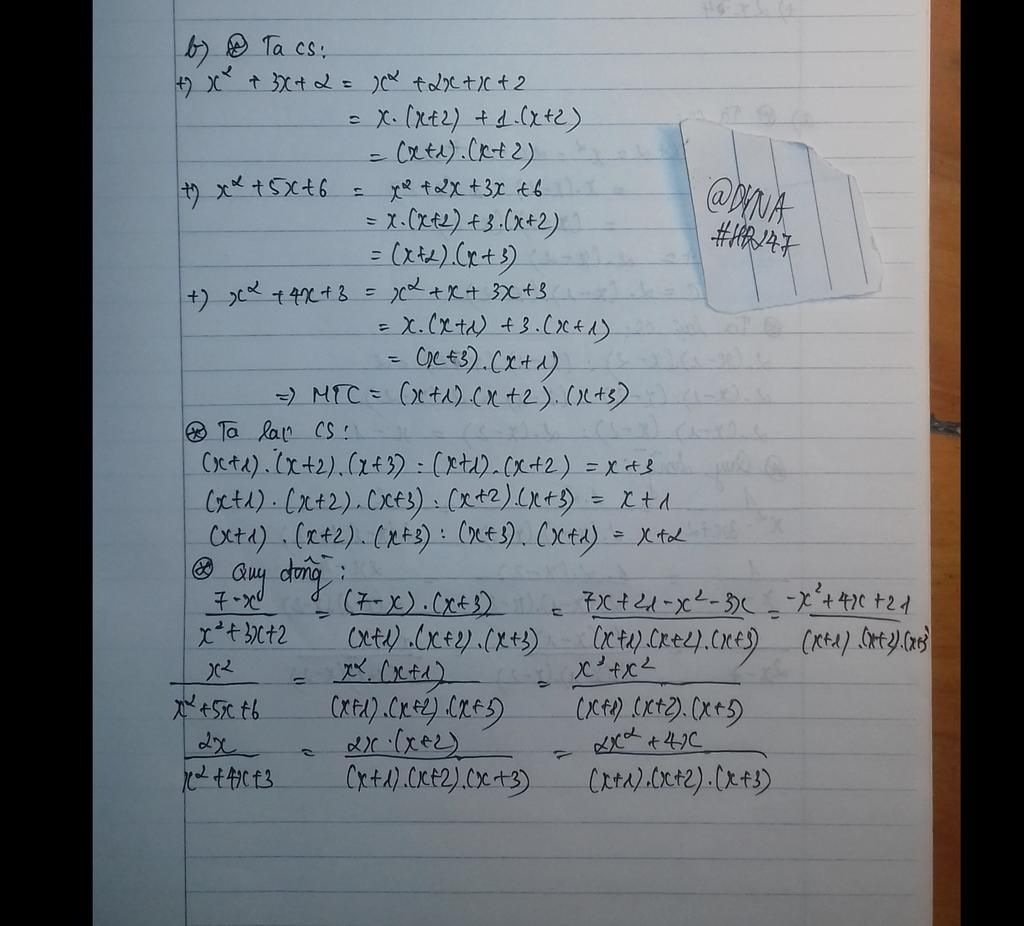 b) ⊛ Ta có:
+) x² + 3x + 2 = x² + 2x + x + 2
= x.(x+2) + 1.(x+2)
= (x+1).(x+2)
+) x² + 5x + 6 = x² + 2x + 3x + 6
= x.(x+2) + 3.(x+2)
= (x+2).(x+3)
+) x² + 4x + 3 = x² + x + 3x + 3
= x.(x+1) + 3.(x+1)
= (x+3).(x+1)
=> MTC = (x+1).(x+2).(x+3)
⊛ Ta lại có:
(x+1).(x+2).(x+3) : (x+1).(x+2) = x+3
(x+1).(x+2).(x+3) : (x+2).(x+3) = x+1
(x+1).(x+2).(x+3) : (x+3).(x+1) = x+2
⊛ Quy đồng:
7-x / x²+3x+2 = (7-x).(x+3) / (x+1).(x+2).(x+3) = 7x+21-x²-3x / (x+1).(x+2).(x+3) = -x²+4x+21 / (x+1).(x+2).(x+3)
x² / x²+5x+6 = x².(x+1) / (x+1).(x+2).(x+3) = x³+x² / (x+1).(x+2).(x+3)
2x / x²+4x+3 = 2x.(x+2) / (x+1).(x+2).(x+3) = 2x²+4x / (x+1).(x+2).(x+3)
@DYNA